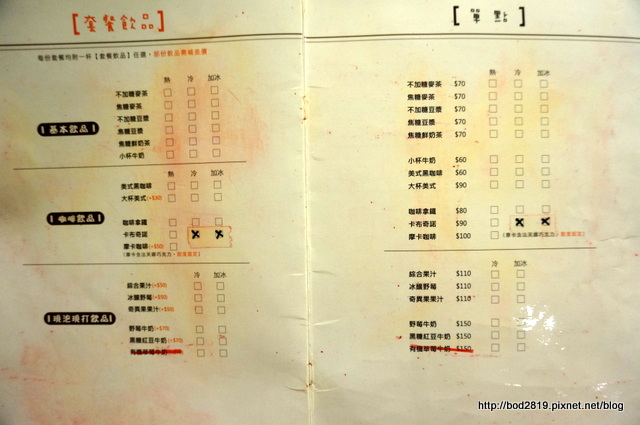 [套餐飲品]
每份套餐均附一杯【套餐飲品】任選,
熱 冷 加冰
基本飲品
不加糖麥茶
焦糖麥茶
不加糖豆漿
焦糖豆漿
焦糖鮮奶茶
小杯牛奶
熱 冷 加冰
咖啡飲品
美式黑咖啡
大杯美式(+$30)
咖啡拿鐵
卡布奇諾
摩卡咖啡(+$50)
(摩卡含法芙娜巧克力,
冷 加冰
現泡現打飲品
綜合果汁(+$50)
冰釀野莓(+$50)
奇異果果汁(+$50)
野莓牛奶(+$70)
黑糖紅豆牛奶(+$70)
有機草莓牛奶
[單點]
熱 冷 加冰
不加糖麥茶 $70
焦糖麥茶 $70
不加糖豆漿 $70
焦糖豆漿 $70
焦糖鮮奶茶 $70
小杯牛奶 $60
美式黑咖啡 $60
大杯美式 $90
咖啡拿鐵 $80
卡布奇諾 $90
摩卡咖啡 $100
(摩卡含法芙娜巧克力,
冷 加冰
綜合果汁 $110
冰釀野莓 $110
奇異果果汁 $110
野莓牛奶 $150
黑糖紅豆牛奶 $150
有機草莓牛奶 $150
http://bod2819.pixnet.net/blog